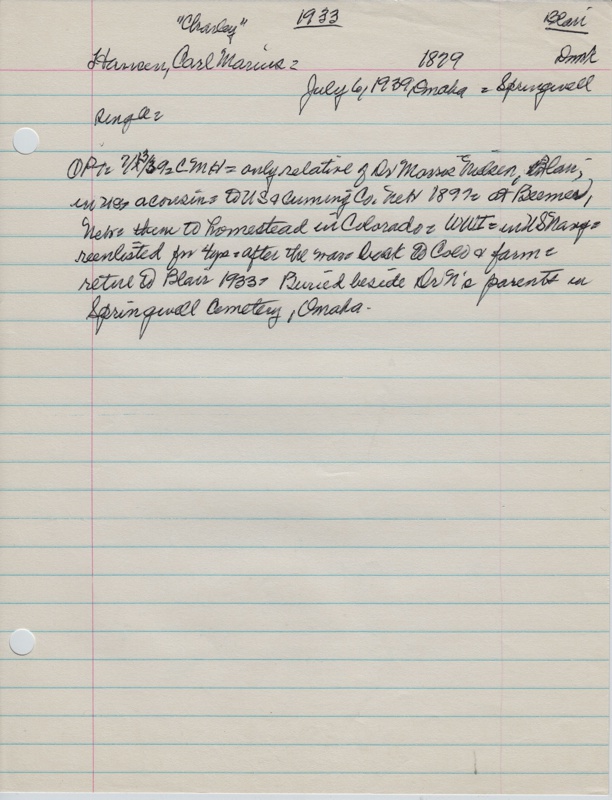 "Charley" 1933 Blair
Hansen, Carl Marius = 1879 Dmk
July 6, 1939, Omaha = Springwell
Single =
OPT = 7/13/39 = CMH = only relative of Dr Morris Nielsen, Blair,
in US = a cousin = to US & Cuming Co. Neb 1897 = at Beemer,
Neb = then to homestead in Colorado = WWI = in US Navy =
reenlisted for 4 yrs = after the war back to Colo & farm =
retire to Blair 1933 = Buried beside Dr N's parents in
Springwell Cemetery, Omaha.